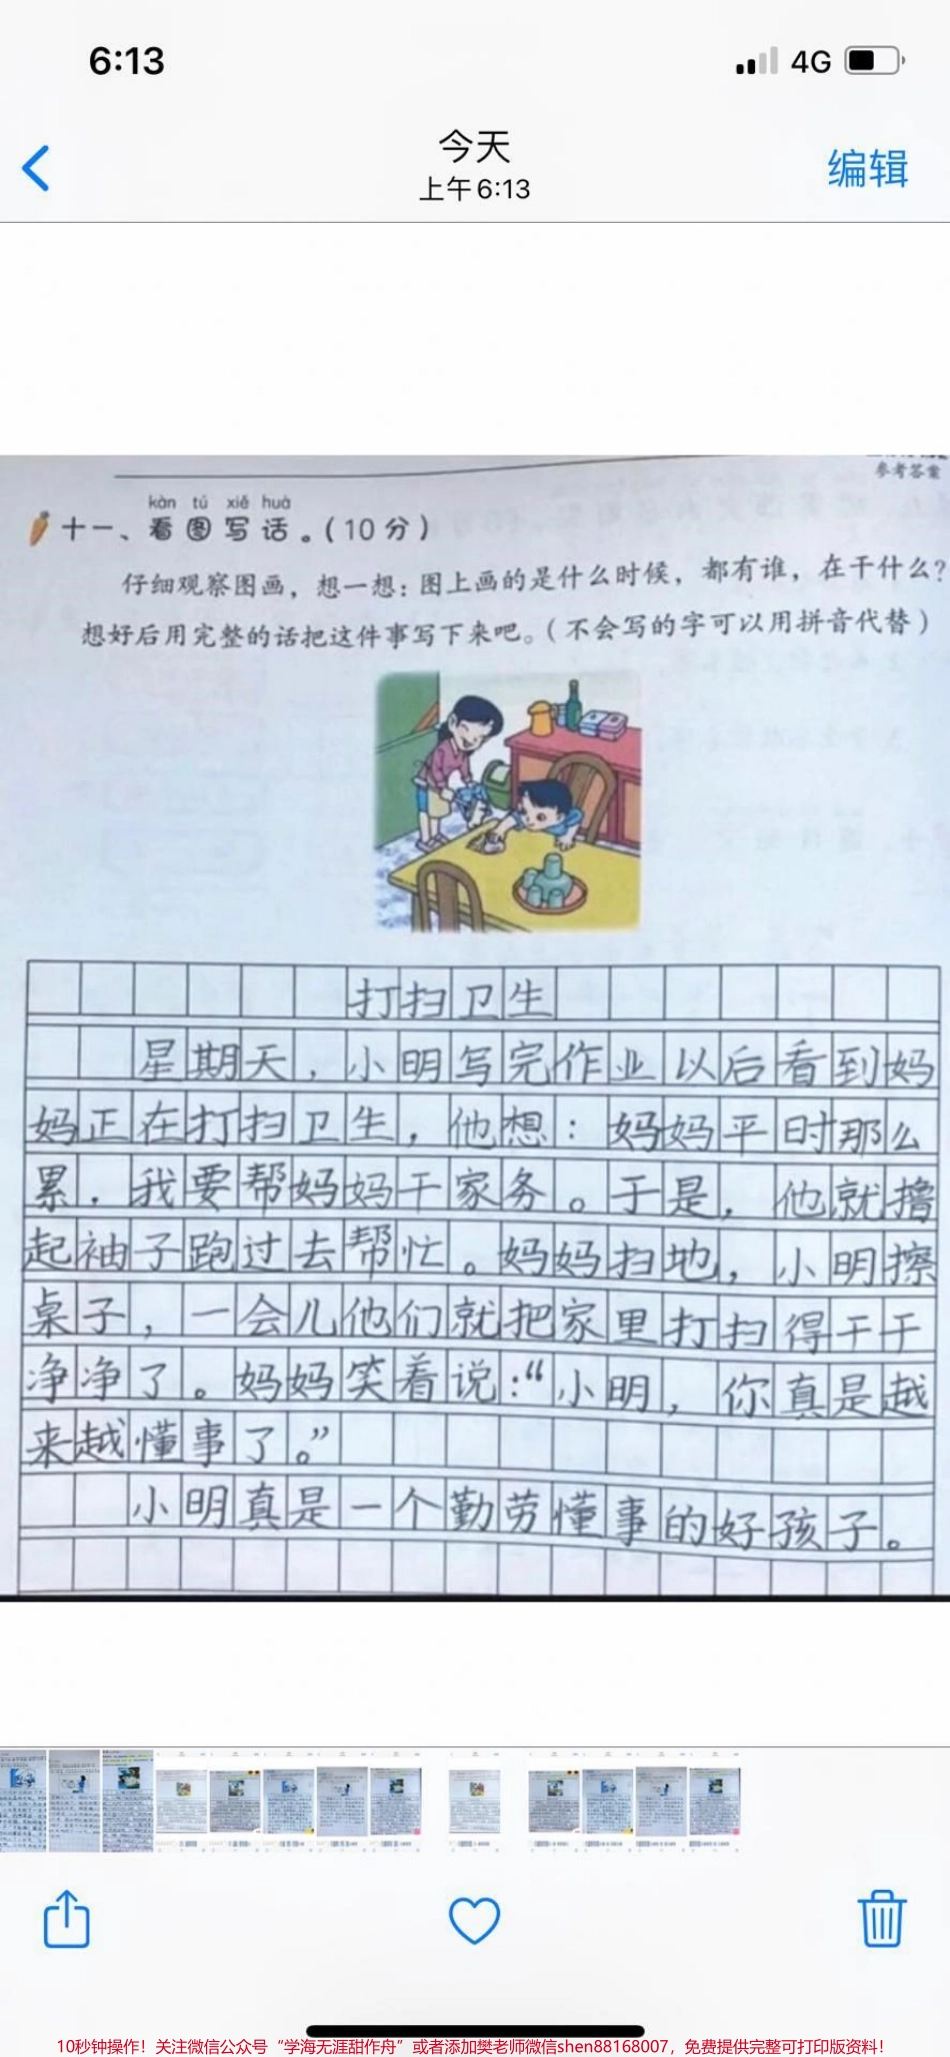 6:13
4G
今天
上午6:13
编辑
参考答案
kàn tú xiě huà
十一、看图写话。(10分)
仔细观察图画，想一想：图上画的是什么时候，都有谁，在干什么？
想好后用完整的话把这件事写下来吧。(不会写的字可以用拼音代替)
打扫卫生
星期天，小明写完作业以后看到妈
妈正在打扫卫生，他想：妈妈平时那么
累．我要帮妈妈干家务。于是，他就撸
起袖子跑过去帮忙。妈妈扫地，小明擦
桌子，一会儿他们就把家里打扫得干干
净净了。妈妈笑着说：“小明，你真是越
来越懂事了。”
小明真是一个勤劳懂事的好孩子。
10秒钟操作！关注微信公众号“学海无涯甜作舟”或者添加樊老师微信shen88168007，免费提供完整可打印版资料！